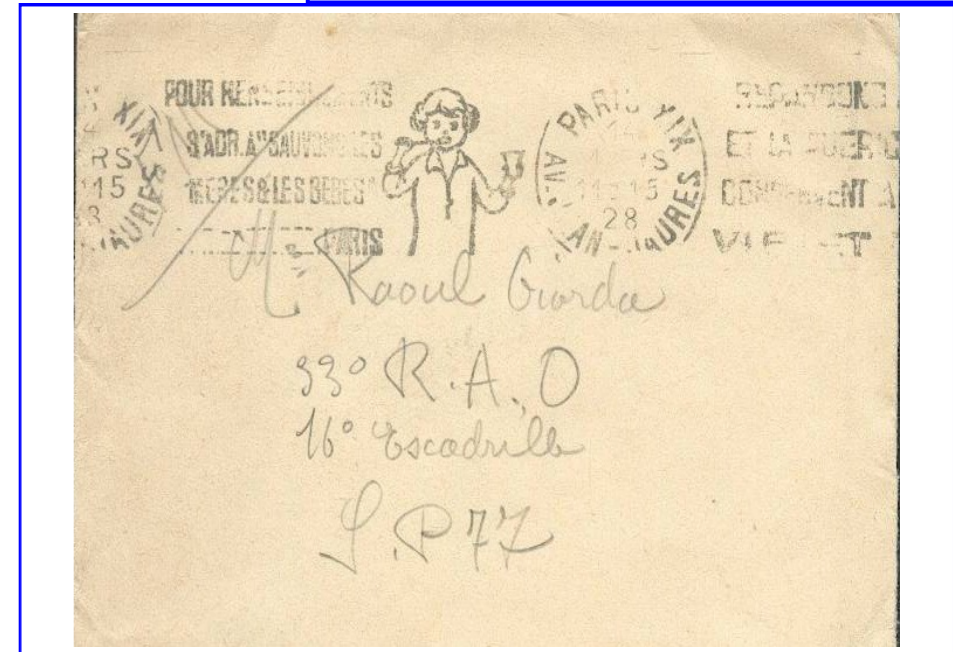 POUR RENSEIGNEMENTS
S'ADR. Aᵁ "SAUVONS LES
MERES & LES BEBES"
PARIS
XIX
RS
15
8
JAURES
PARIS XIX
RS
11 15
28
AV. JEAN-JAURES
ET LA
VIE ET
Mʳ Raoul Giorda
33° R.A.O
16° Escadrille
S.P 77